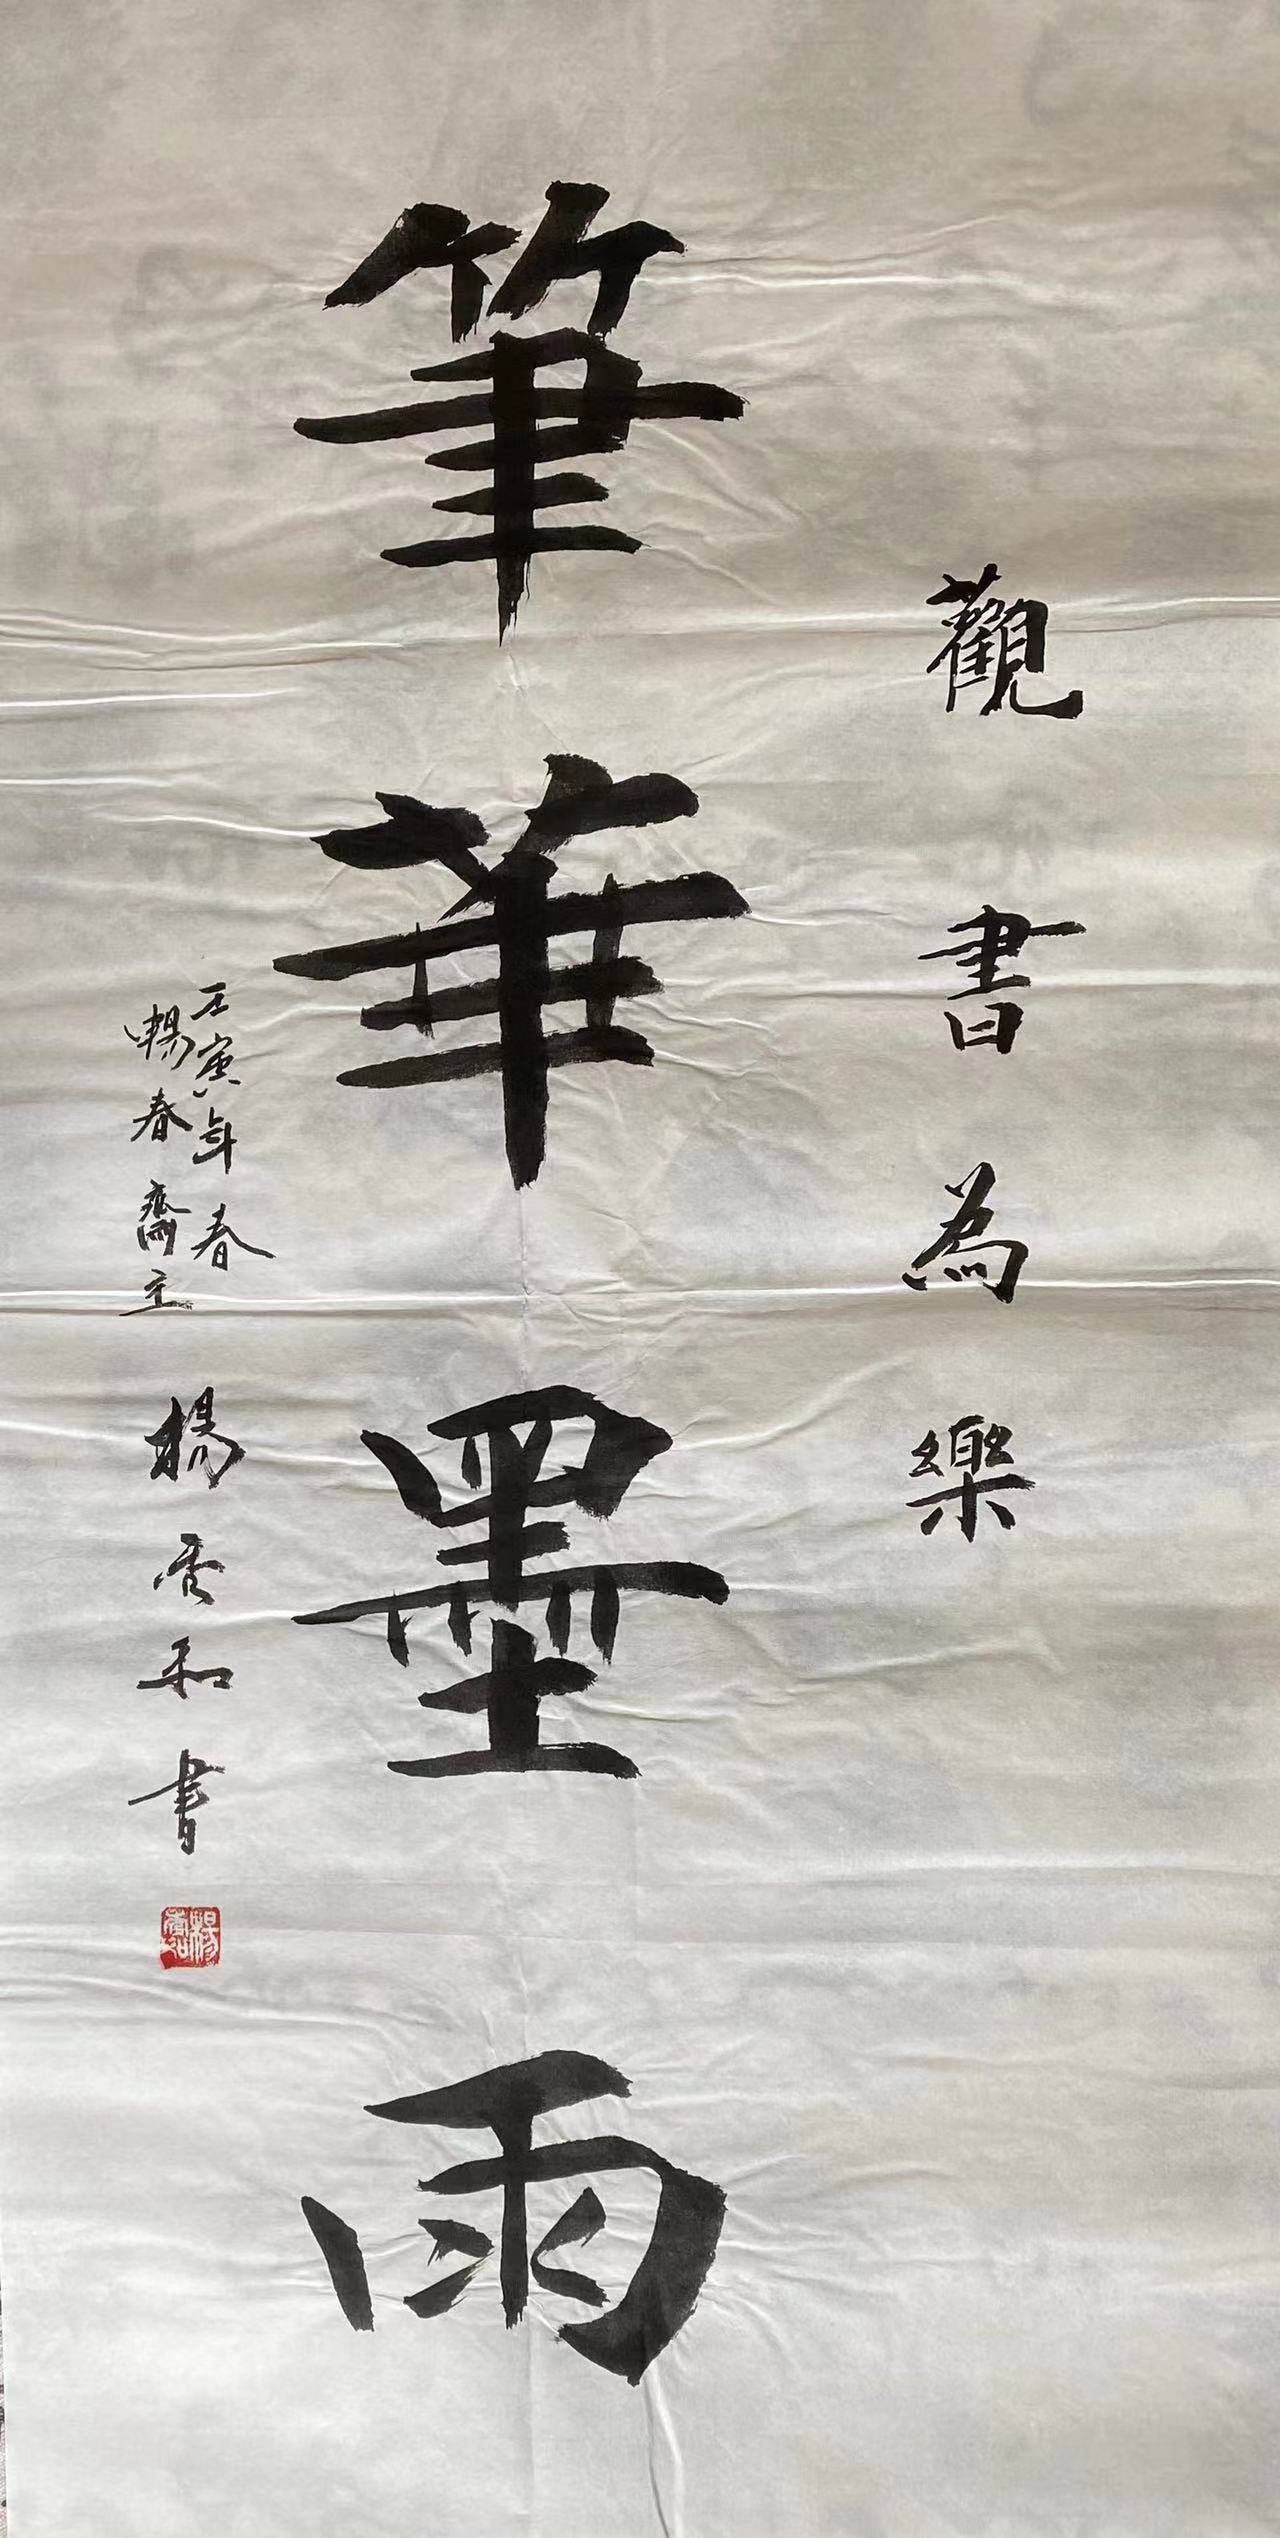 觀書為樂
筆華墨雨
壬寅年春
暢春齋主
楊秀和書